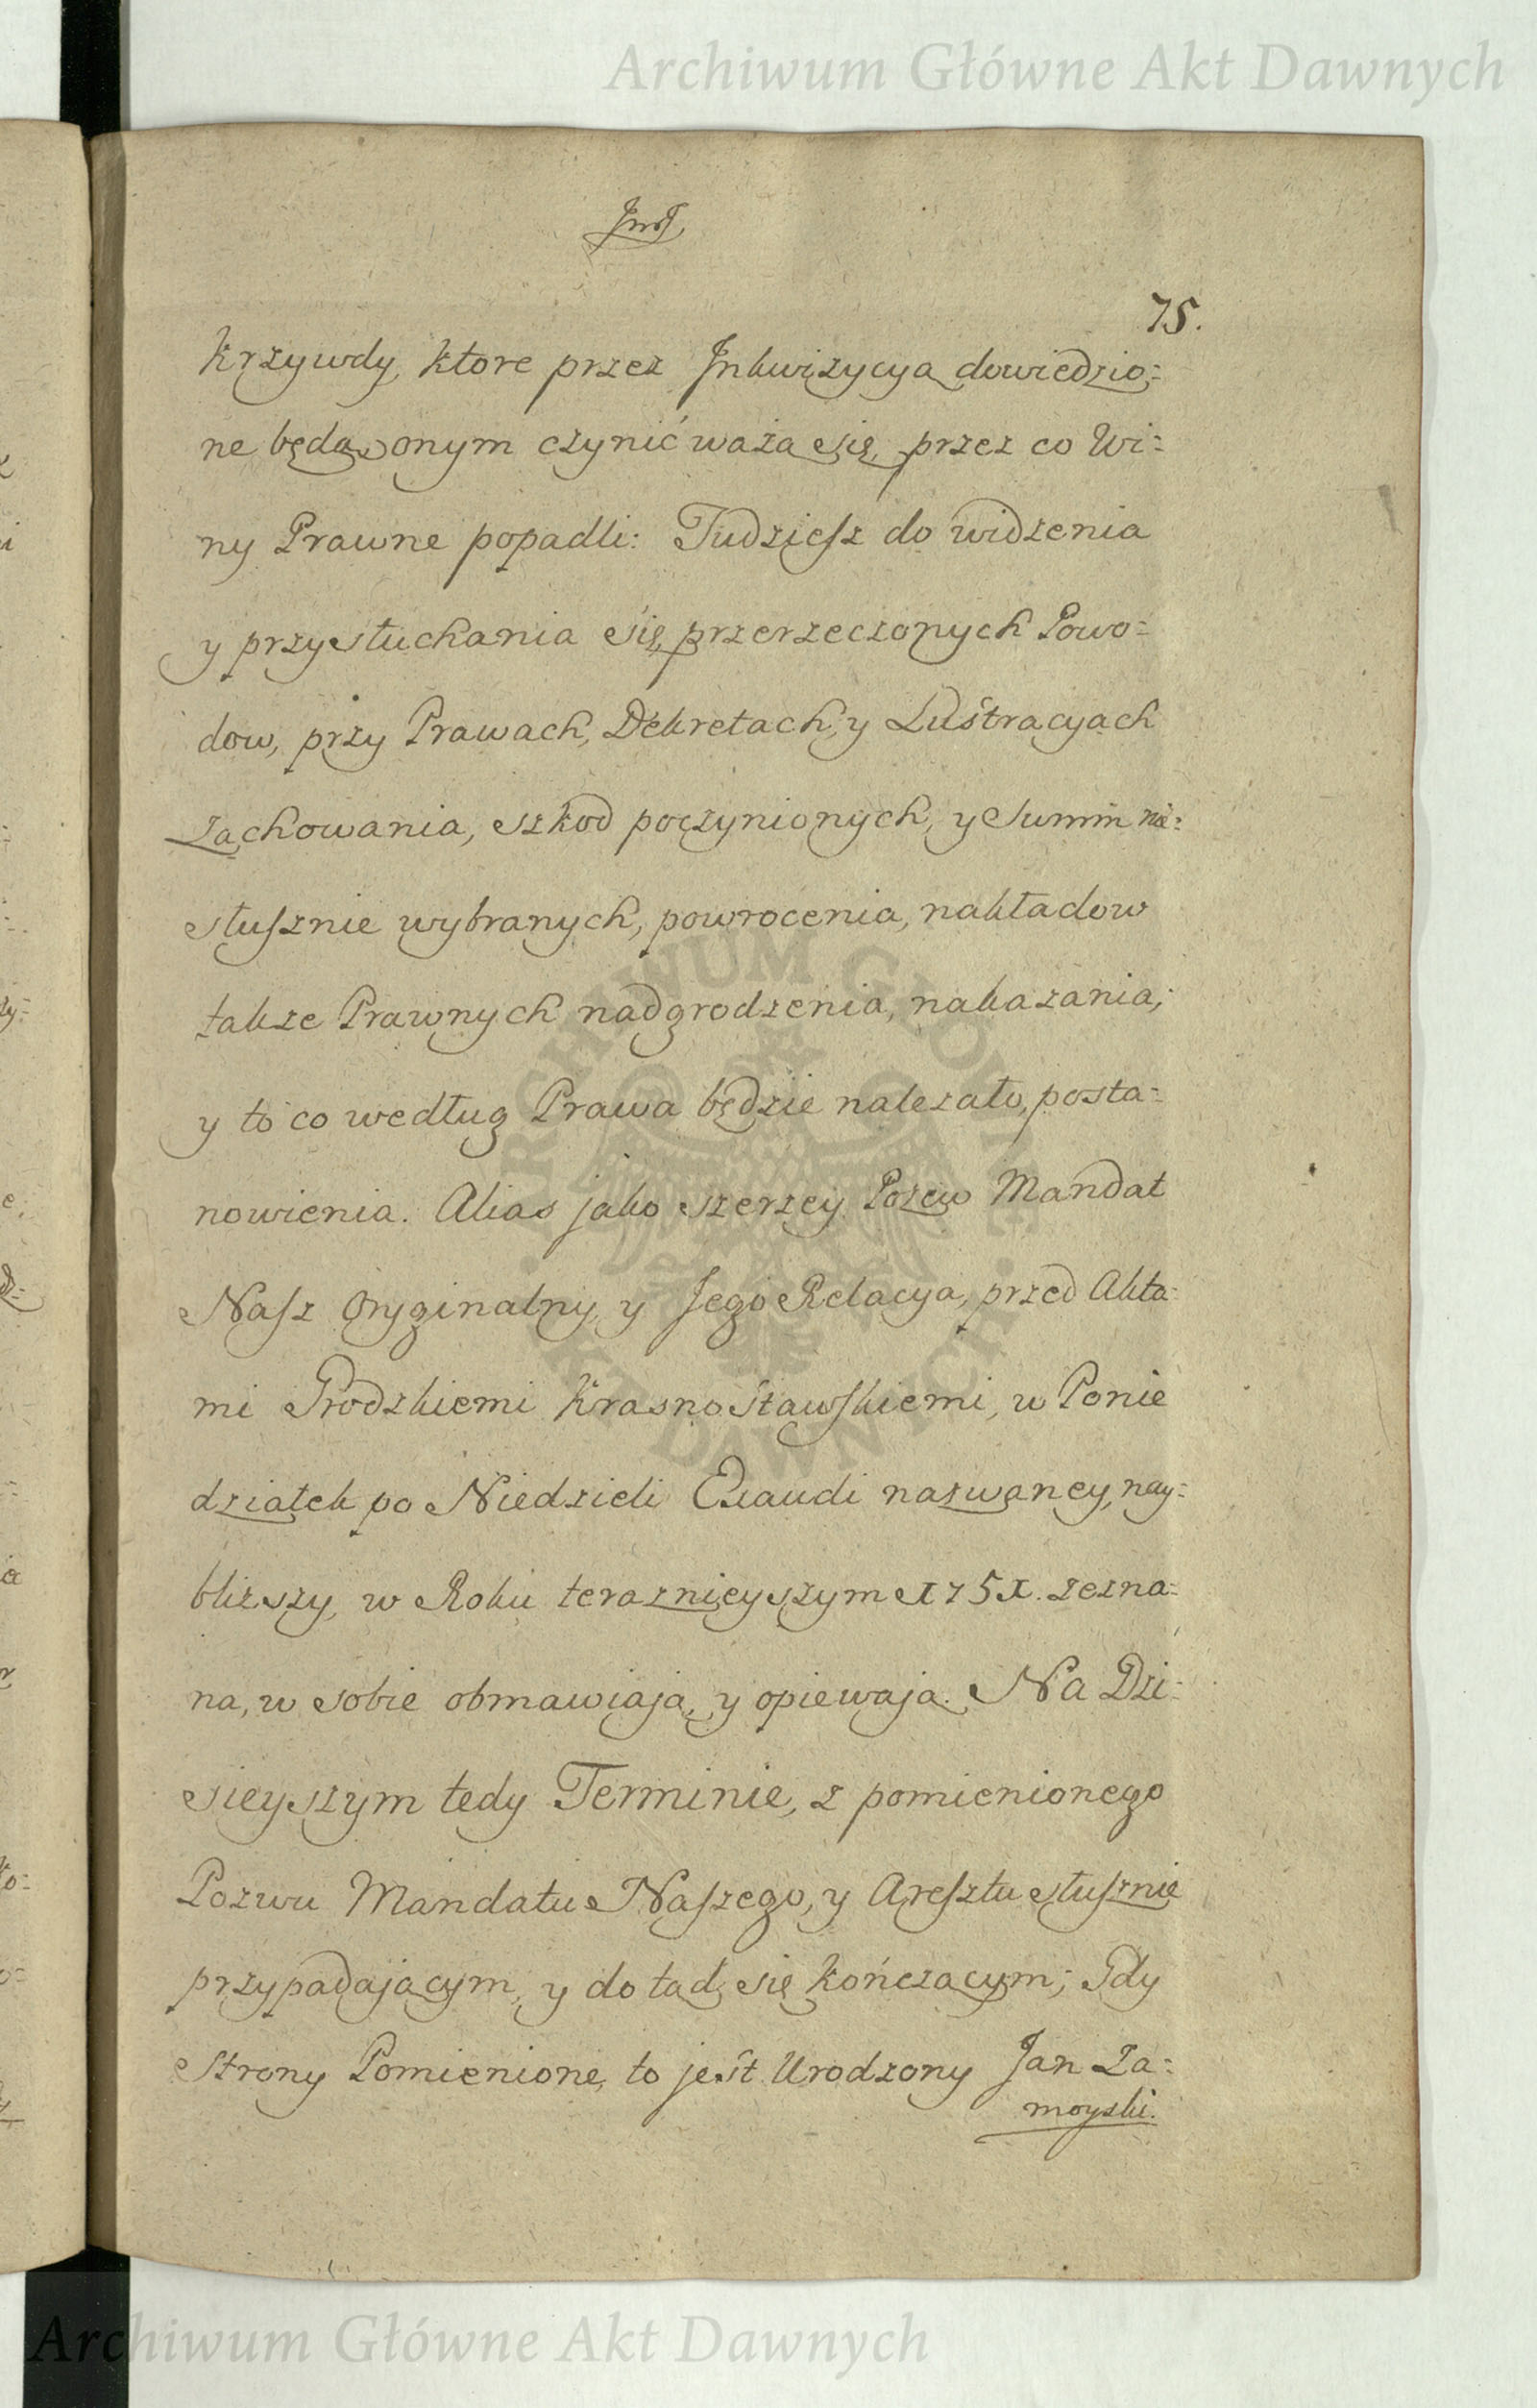 Archiwum Główne Akt Dawnych
75.
Krzywdy, ktore przez Inkwizycyą dowiedzio=
ne będą, onym czynić ważą się, przez co Wi=
ny Prawne popadli: Tudziesz do widzenia
y przysłuchania się, przerzeczonych Powo=
dow, przy Prawach, Dekretach, y Lustracyach
zachowania, szkod poczynionych, y Summ nie=
słusznie wybranych, powrocenia, nakładow
takze Prawnych nadgrodzenia, nakazania,
y to co według Prawa będzie nalezało, posta=
nowienia. Alias jako szerzey Pozew Mandat
Nasz Oryginalny, y Jego Relacya, przed Akta=
mi Grodzkiemi Krasnostawskiemi, w Ponie
działek po Niedzieli Exaudi nazwaney, nay=
bliższy, w Roku teraznieyszym 1751. zezna=
na, w sobie obmawiaią, y opiewaią. Na Dzi=
sieyszym tedy Terminie, z pomienionego
Pozwu Mandatu Naszego, y Aresztu słusznie
przypadaiącym, y do tąd się kończącym; Gdy
Strony Pomienione, to jest Urodzony Jan Za=
moyski.
ARCHIWUM GŁÓWNE AKT DAWNYCH
Archiwum Główne Akt Dawnych